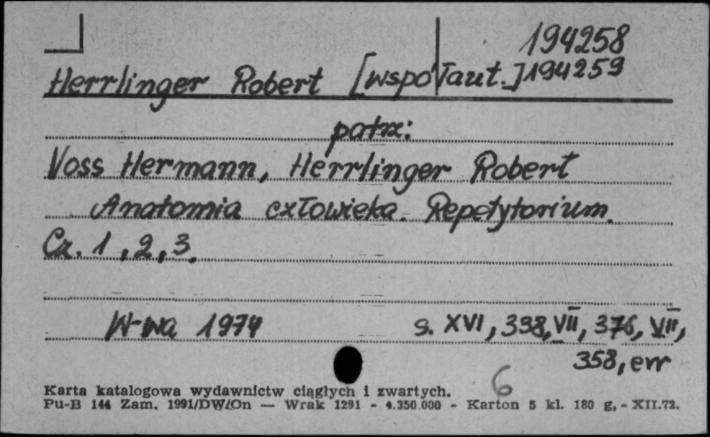 194258
Herrlinger Robert [współaut.] 194259
patrz:
Voss Hermann, Herrlinger Robert
Anatomia człowieka. Repetytorium.
Cz. 1, 2, 3.
W-wa 1974 s. XVI, 338, VII, 376, VII,
358, err
6
Karta katalogowa wydawnictw ciągłych i zwartych.
Pu-B 144 Zam. 1991/DW/On — Wrak 1291 - 4.350.000 - Karton 5 kl. 180 g, - XII.72.